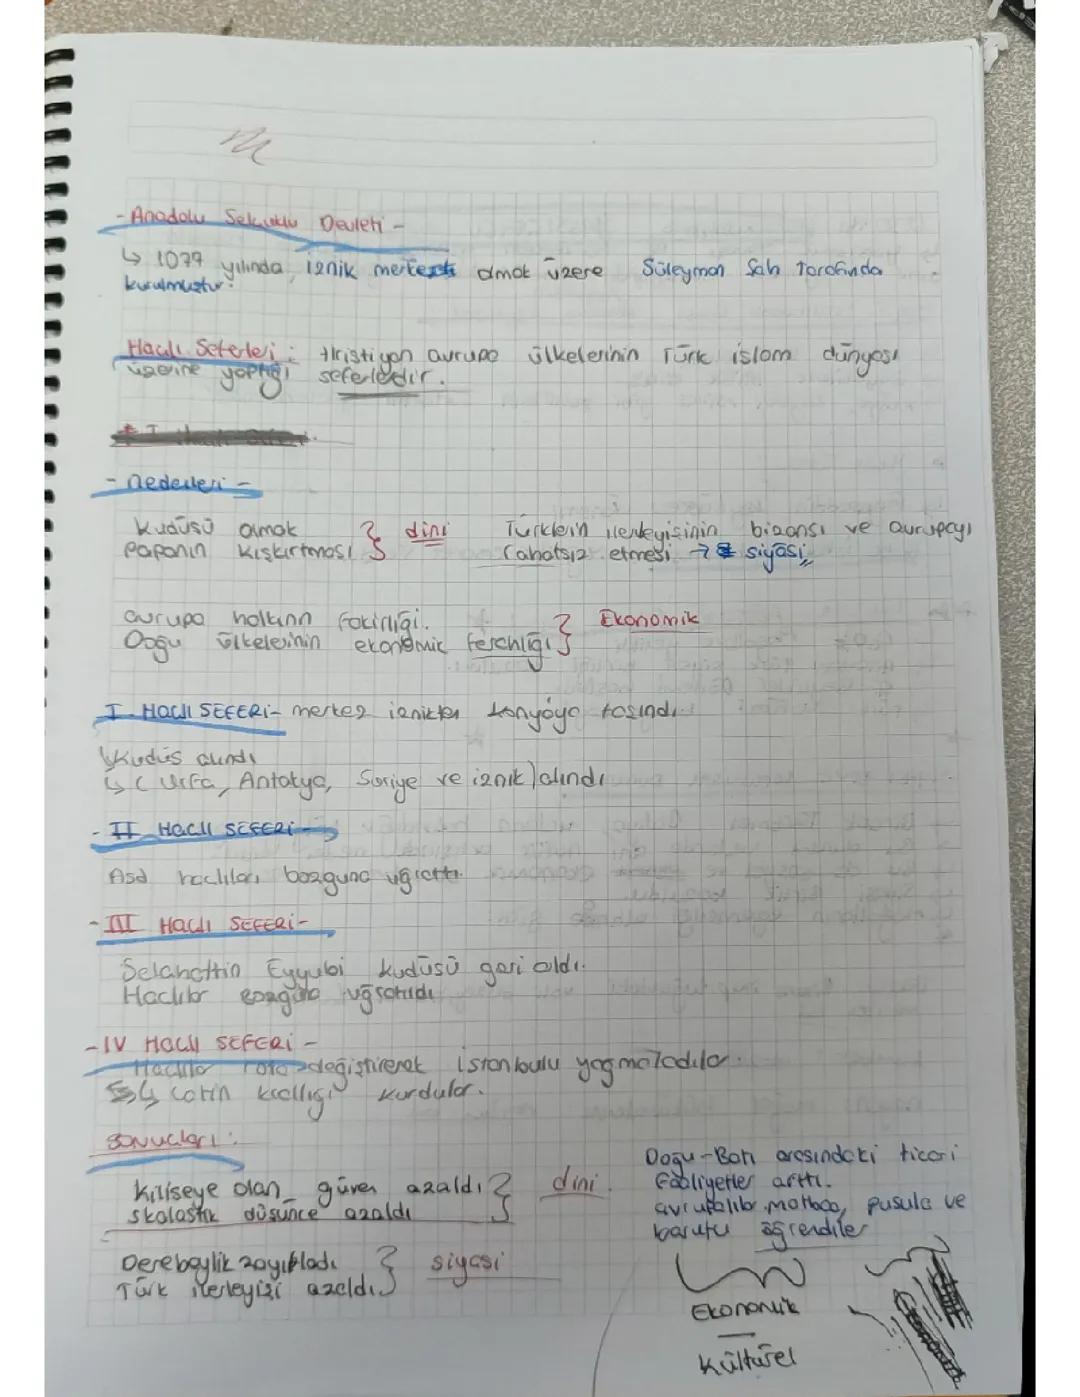 - Anadolu Selçuklu Devleti -
↳ 1077 yılında, iznik merkezli olmak üzere Süleyman Şah Tarafında
kurulmuştur.
Haçlı Seferleri : Hristiyan avrupa ülkelerinin Türk islam dünyası
üzerine yaptığı seferledir.
- nedenleri -
Kudüsü almak
Papanın kışkırtması } dini
Türklerin ilerleyişinin bizansı ve avrupayı
rahatsız etmesi → siyasi
avrupa halkının fakirliği.
Doğu ülkelerinin ekonomik ferahlığı } Ekonomik
I HAÇLI SEFERİ- merkez iznikten konyaya taşındı
↳Kudüs alındı
↳ ( Urfa, Antakya, Suriye ve iznik) alındı
- II HAÇLI SEFERİ -
Asd haçlıları bozguna uğrattı.
- III HAÇLI SEFERİ -
Selahattin Eyyubi kudüsü geri aldı.
Haçlılar bozguna uğratıldı
- IV HAÇLI SEFERİ -
Haçlılar rota değiştirerek istanbulu yağmaladılar.
↳ Latin krallığı kurdular.
SONUÇları :
Kiliseye olan güven azaldı
skolastik düşünce azaldı } dini.
Derebeylik zayıfladı
Türk ilerleyişi azaldı. } siyasi
Doğu-Batı arasındaki ticari
faaliyetler arttı.
avrupalılar matbaa, pusula ve
barutu öğrendiler
Ekonomik
Kültürel